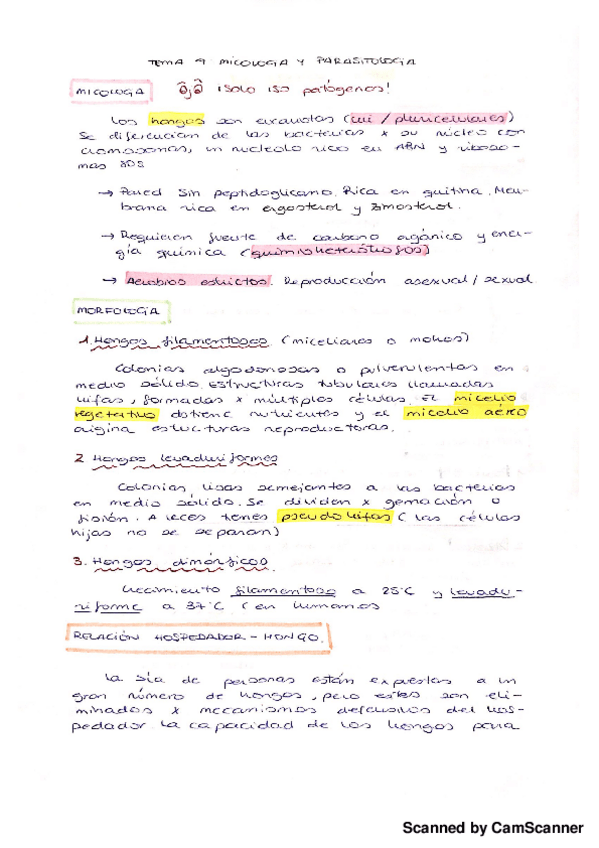 TEMA 9 MICOLOGÍA Y PARASITOLOGÍA
MICOLOGÍA ojo ¡solo 150 patógenos!
Los hongos son eucariotas (uni / pluricelulares)
Se diferencian de las bacterias x su núcleo con
cromosomas, un nucleolo rico en ARN y riboso-
mas 80S
→ Pared sin peptidoglicano. Rica en quitina. Mem-
brana rica en ergosterol y zimosterol.
→ Requieren fuente de carbono orgánico y ener-
gía química (quimioheterótrofos)
→ Aerobios estrictos. Reproducción asexual / sexual
MORFOLOGÍA
1. Hongos filamentosos (miceliares o mohos)
Colonias algodonosas o pulverulentas en
medio sólido. Estructuras tubulares llamadas
hifas, formadas x múltiples células. El micelio
vegetativo obtiene nutrientes y el micelio aéreo
origina estructuras reproductoras.
2. Hongos levaduriformes
Colonias lisas semejantes a las bacterias
en medio sólido. Se dividen x gemación o
fisión. A veces tienes pseudohifas (las células
hijas no se separan)
3. Hongos dimórficos
Crecimiento filamentoso a 25°C y levadu-
riforme a 37°C (en humanos
RELACIÓN HOSPEDADOR - HONGO.
La de personas están expuestas a un
gran número de hongos, pero estos son eli-
minados x mecanismos defensivos del hos-
pedador. La capacidad de los hongos para
Scanned by CamScanner